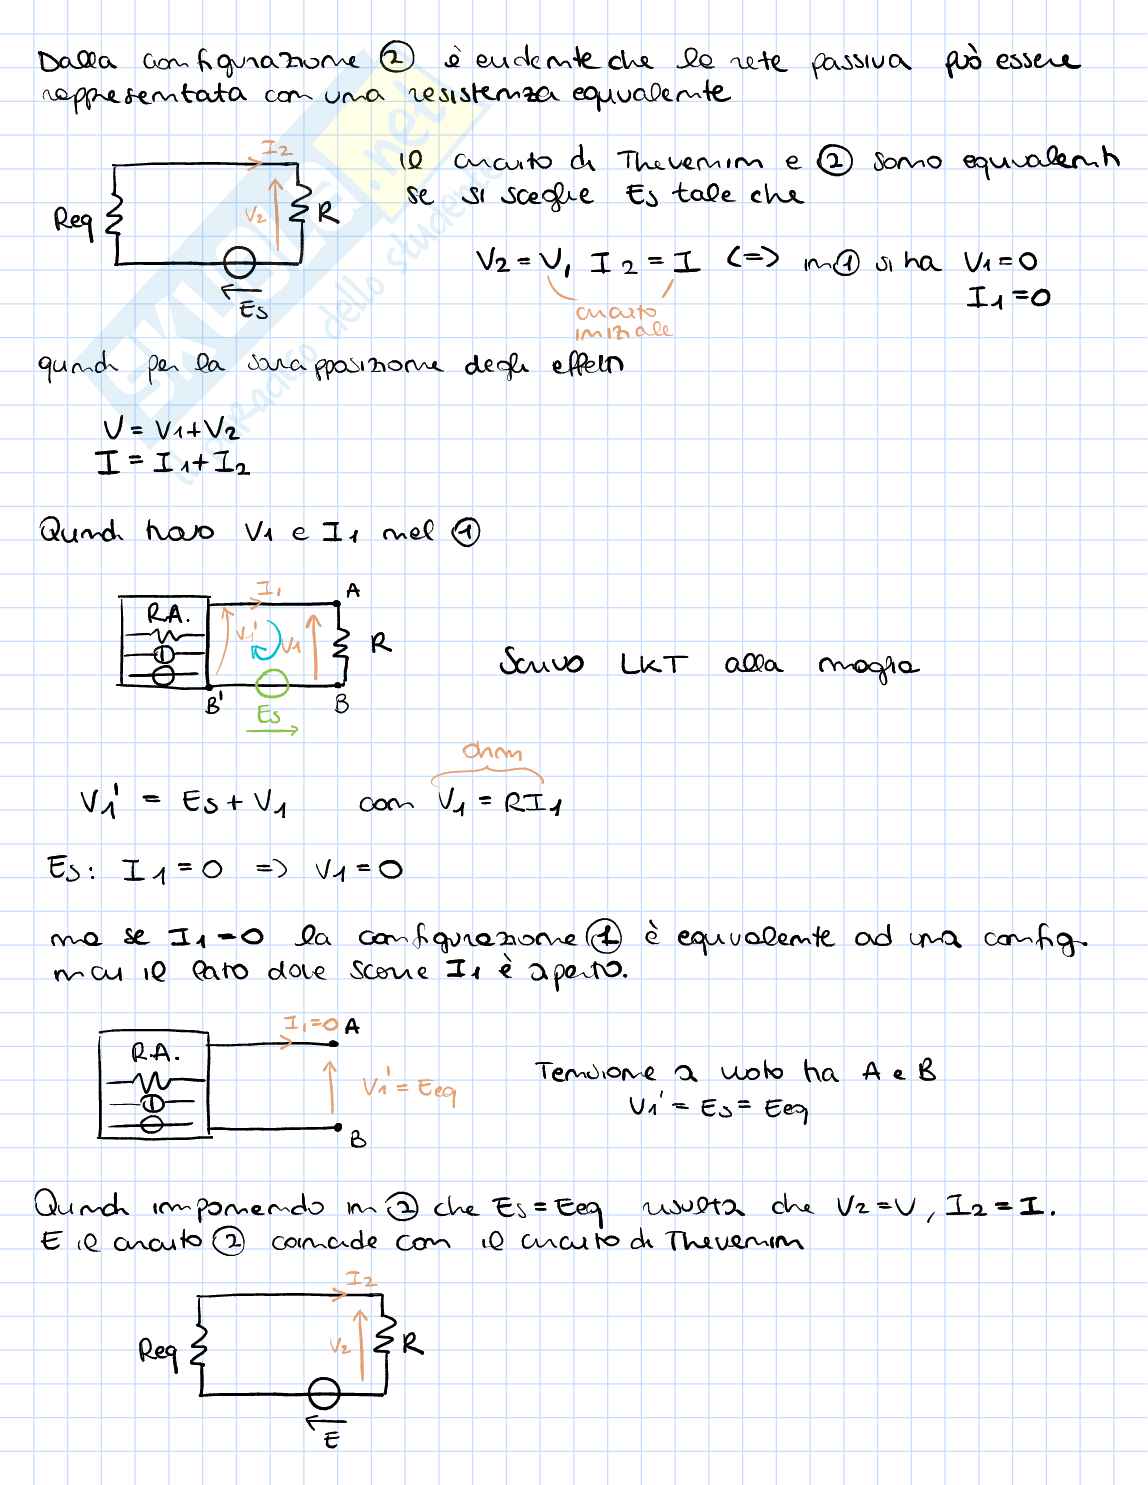 Dalla configurazione ② è evidente che la rete passiva può essere
rappresentata con una resistenza equivalente
I2
Req
V2
R
Es
il circuito di Thevenin e ② sono equivalenti
se si sceglie Es tale che
V2 = V, I2 = I <=> in ① si ha V1 = 0
I1 = 0
circuito
iniziale
quindi per la sovrapposizione degli effetti
V = V1+V2
I = I1+I2
Quindi trovo V1 e I1 nel ①
I1
A
R.A.
V1'
V1
R
B'
Es
B
Scrivo LKT alla maglia
ohm
V1' = Es + V1 con V1 = RI1
Es: I1 = 0 => V1 = 0
ma se I1 = 0 la configurazione ① è equivalente ad una config.
in cui il lato dove scorre I1 è aperto.
I1=0 A
R.A.
V1' = Eeq
B
Tensione a vuoto tra A e B
V1' = Es = Eeq
Quindi imponendo in ② che Es = Eeq risulta che V2 = V, I2 = I.
E il circuito ② coincide con il circuito di Thevenin
I2
Req
V2
R
E
SKUOLA.net
il paradiso dello studente